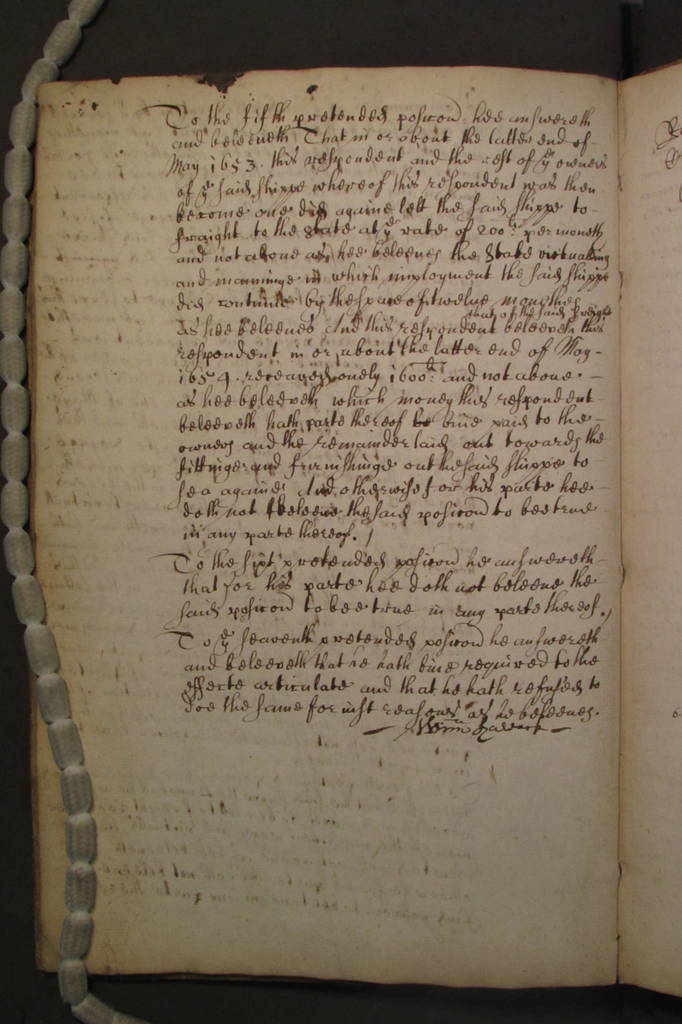 To the fifth pretended posicon hee answereth
and beleeveth That in or about the latter end of
May 1653. this respondent and the rest of ye owners
of ye said shippe whereof this respondent was then
become one did againe lett the said shippe to
fraight to the State at ye rate of 200li per moneth
and not above as hee beleeves the State victualling
and manninge in which imployment the said shippe
did continue by the space of twelve monethes
as hee beleeves And this respondent beleeveth this
that of the said freight
respondent in or about the latter end of May
1654. receaved onely 1600li and not above
as hee beleeveth which money this respondent
beleeveth hath parte thereof bine paid to the
owners and the remainder laid out towards the
fittinge and furnishinge out the said shippe to
sea againe And otherwise for his parte hee
doth not beleeve the said posicon to bee true
in any parte thereof./
To the sixt pretended posicon he answereth
that for his parte hee doth not beleeve the
said posicon to bee true in any parte thereof./
To ye seaventh pretended posicon he answereth
and beleeveth that he hath bine required to the
effecte articulate and that he hath refused to
doe the same for just reasons as he beleeves.